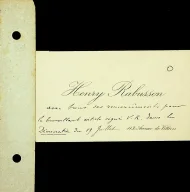 Henry Rabusson
avec tous ses remerciements pour
le bienveillant article signé V. R. dans la
Dimanche du 19 Juillet. 112 Avenue de Villiers